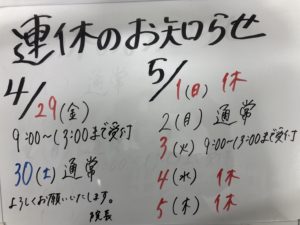 連休のお知らせ
4/
29(金)
9:00~13:00まで受付
30(土) 通常
よろしくお願いいたします。
院長
5/
1(日) 休
2(月) 通常
3(火) 9:00~13:00まで受付
4(水) 休
5(木) 休